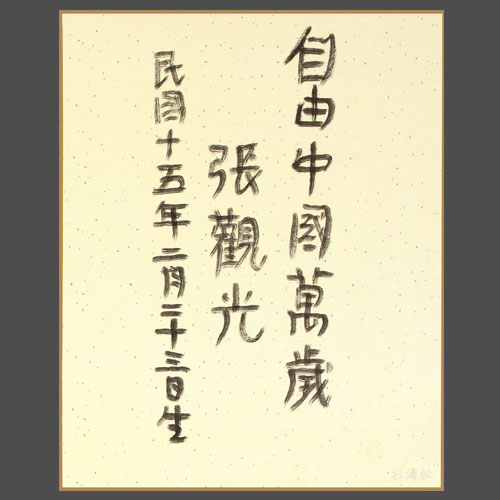 自由中國萬歲
張觀光
民國十五年二月二十三日生
松濤社